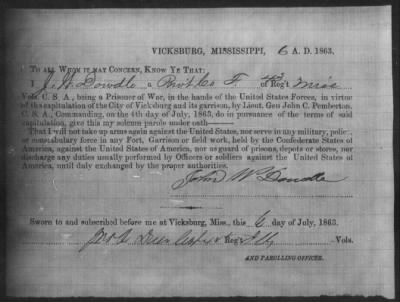 VICKSBURG, MISSISSIPPI, 6 A. D. 1863.
TO ALL WHOM IT MAY CONCERN, KNOW YE THAT:
I, J. W. Dowdle a Privt Co F 43 Reg't Miss
Vols. C. S. A., being a Prisoner of War, in the hands of the United States Forces, in virtue
of the capitulation of the City of Vicksburg and its garrison, by Lieut. Gen John C. Pemberton,
C. S. A., Commanding, on the 4th day of July, 1863, do in pursuance of the terms of said
capitulation, give this my solemn parole under oath——
That I will not take up arms again against the United States, nor serve in any military, police
or constabulary force in any Fort, Garrison or field work, held by the Confederate States of
America, against the United States of America, nor as guard of prisons, depots or stores, nor
discharge any duties usually performed by Officers or soldiers against the United States of
America, until duly exchanged by the proper authorities.
John W Dowdle
Sworn to and subscribed before me at Vicksburg, Miss., this 6 day of July, 1863.
Reg't Vols.
AND PAROLLING OFFICER.